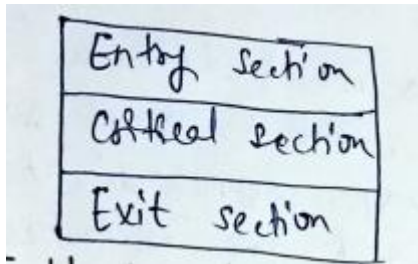 Entry Section
Critical Section
Exit section